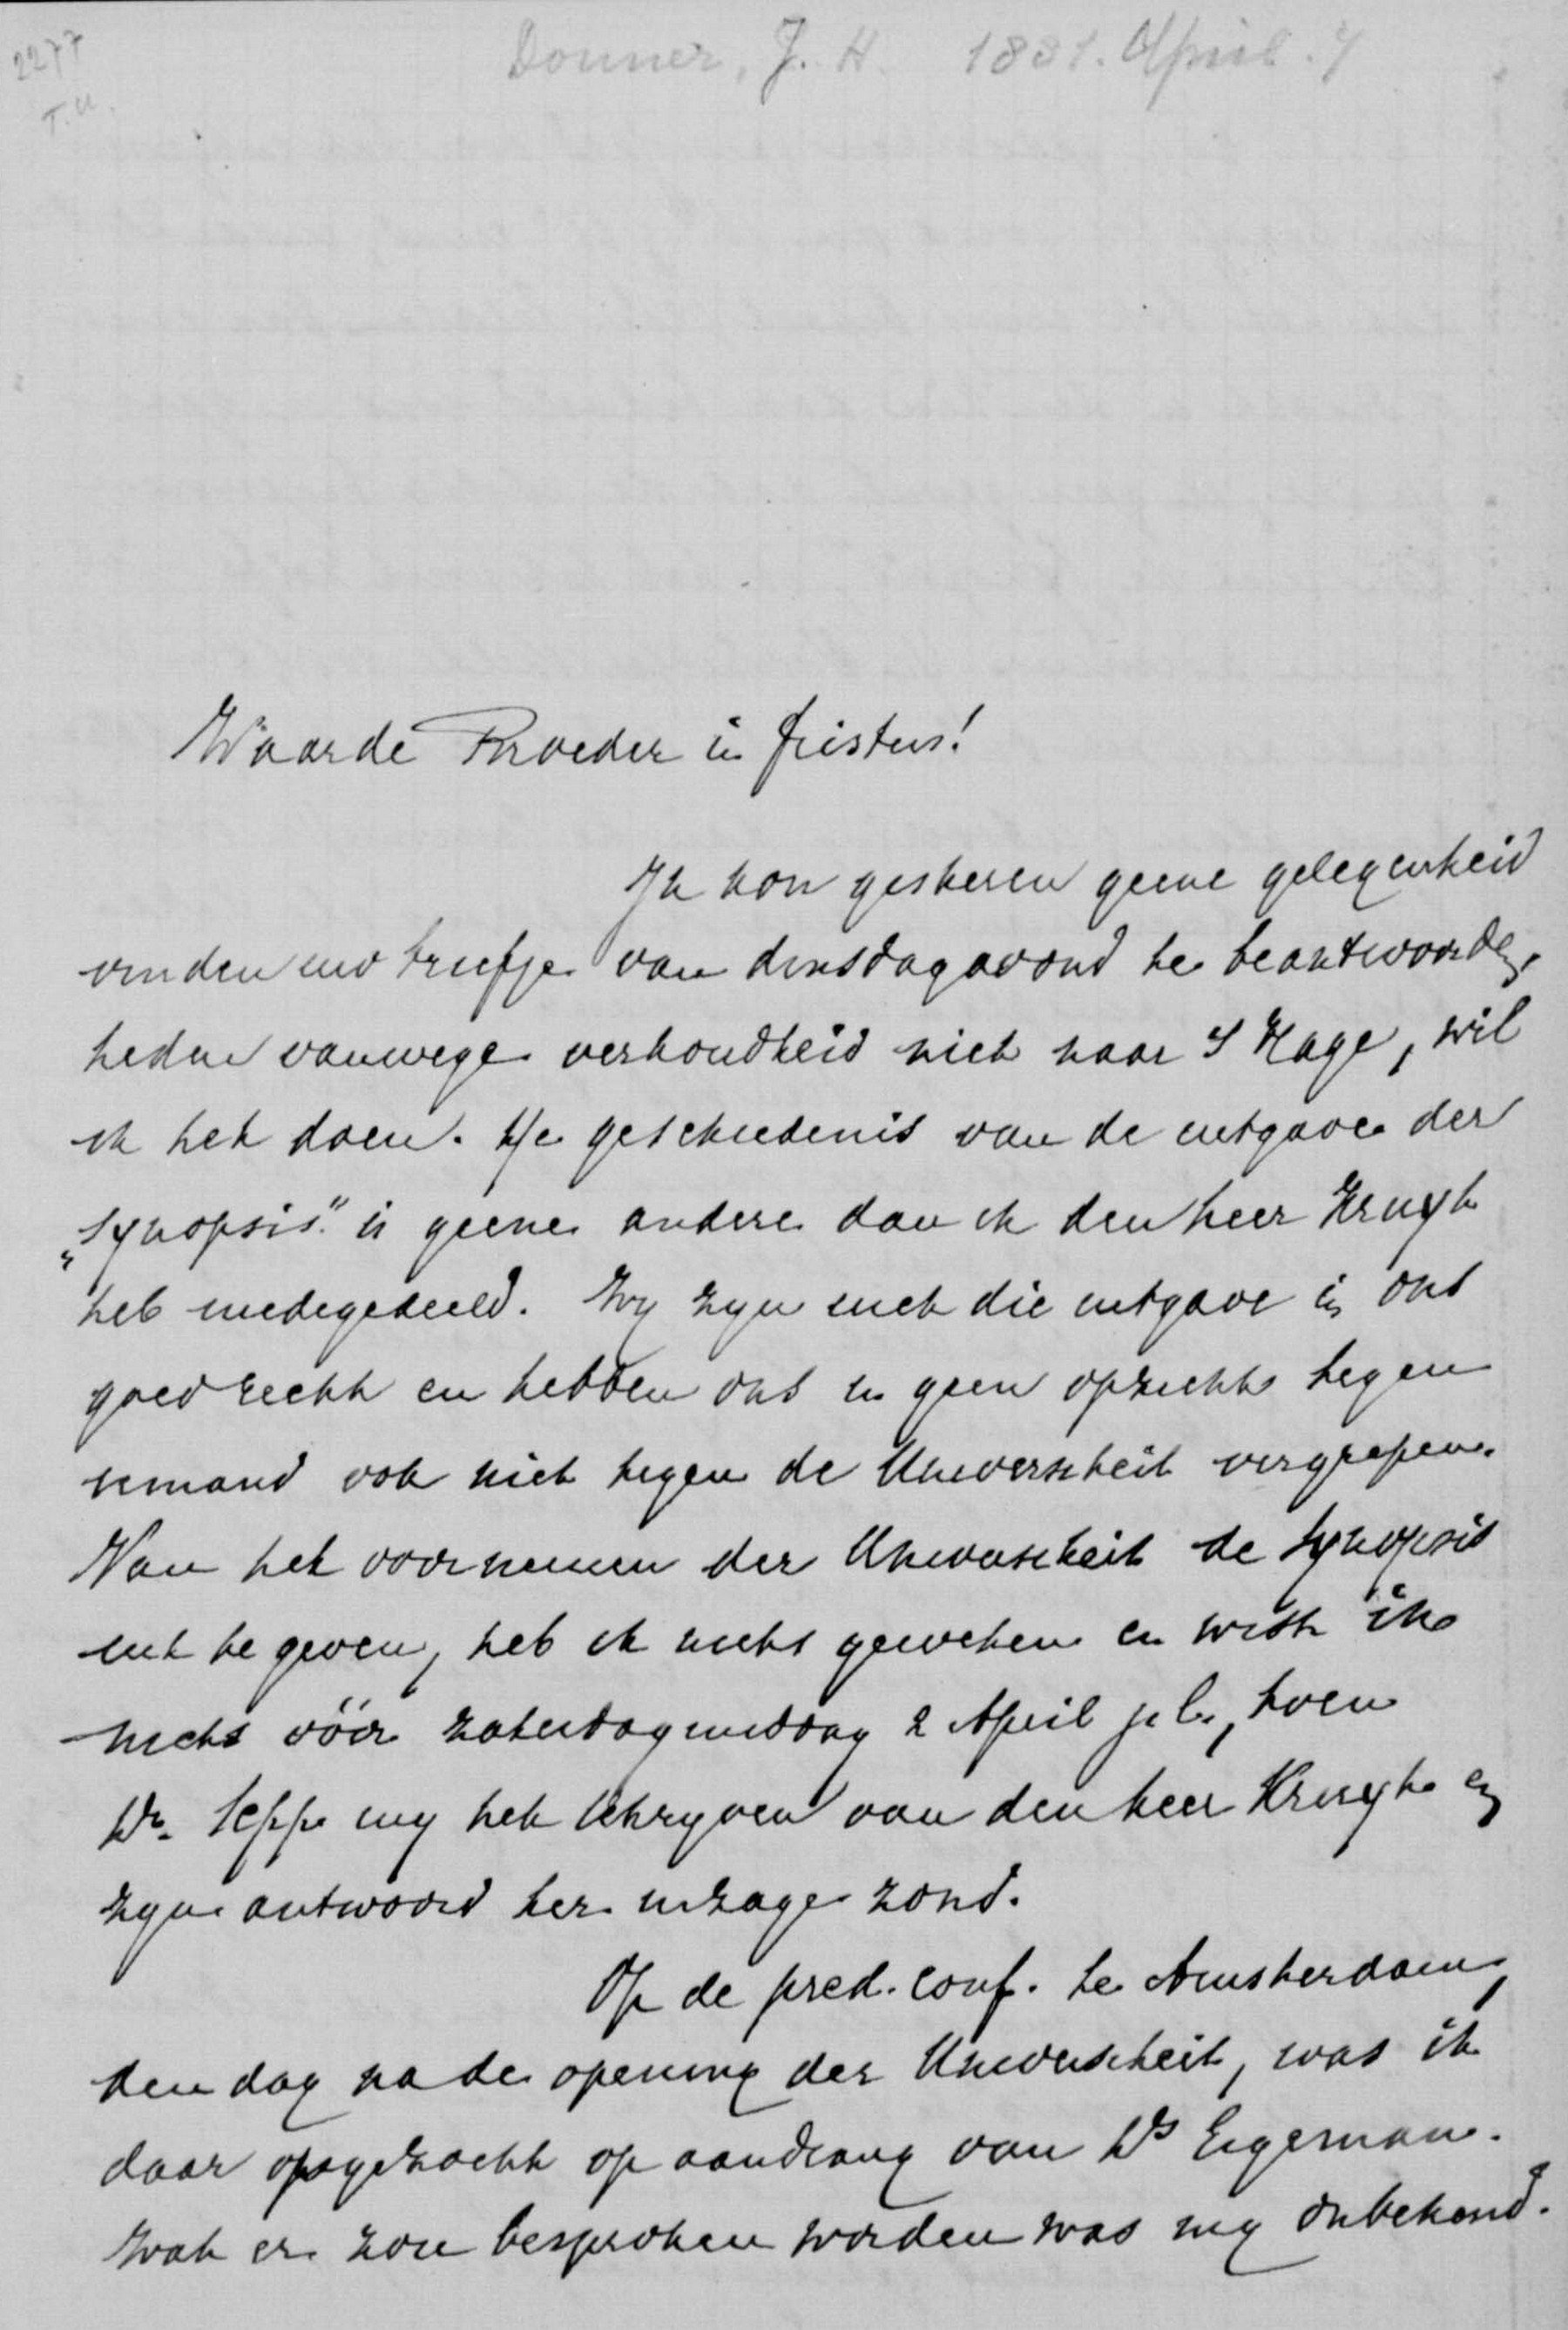 2277
T.U.
Donner, J. H. 1881. April. 7
Waarde Broeder in Christus!
Ik kon gisteren geene gelegenheid
vinden uw briefje van dinsdagavond te beantwoorden,
heden vanwege verkoudheid niet naar 's Hage, wil
ik het doen. De geschiedenis van de uitgave der
„Synopsis" is geene andere dan ik den heer Kruyt
heb medegedeeld. Wy zyn met die uitgave in ons
goed recht en hebben ons in geen opzicht tegen
iemand ook niet tegen de Universiteit vergrepen.
Van het voornemen der Universiteit de Synopsis
uit te geven, heb ik niets geweten en wist ik
niets vóór zaterdagmiddag 2 April jl., toen
Dr. Sepp my het schryven van den heer Kruyt en
zyn antwoord ter inzage zond.
Op de pred. conf. te Amsterdam,
den dag na de opening der Universiteit, was ik
daar opgezocht op aandrang van Ds Eigeman.
Wat er zou besproken worden was my onbekend.